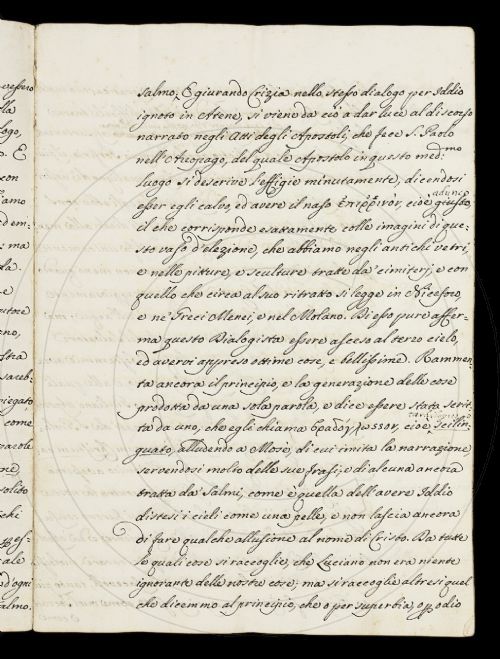 Salmo. E giurando Crizia nello stesso dialogo per Iddio
ignoto in Atene, si viene da ciò a dar luce al discorso
narrato negli Atti degli Apostoli, che fece S. Paolo
nell'Areopago, del quale Apostolo in questo med.mo
luogo si descrive l'effigie minutamente, dicendosi
adunco
esser egli calvo, ed avere il naso ἐπίῤῥινον, cioè giusto,
il che corrisponde esattamente colle imagini di que-
sto vaso d'elezione, che abbiamo negli antichi vetri,
e nelle pitture, e sculture tratte da' cimiterj, e con
quello che circa al suo ritratto si legge in Niceforo,
e ne' Greci Menei, e nel Molano. Di esso pure affer-
ma questo Dialogista essere asceso al terzo cielo,
ed avervi appreso ottime cose, e bellissime. Rammen-
ta ancora il principio, e la generazione delle cose
prodotta da una sola parola, e dice essere stata scrit-
ta da uno, che egli chiama βραδύγλωσσον, cioè Scilin-
guato, alludendo a Mosè, di cui imita la narrazione,
servendosi molto delle sue frasi, e di alcuna ancora
tratta da' Salmi, come è quella dell'avere Iddio
distesi i cieli come una pelle, e non lascia ancora
di fare qualche allusione al nome di Cristo. Da tutte
le quali cose si raccoglie, che Luciano non era niente
ignorante delle nostre cose; ma si raccoglie altresì quel
che dicemmo al principio, che o per superbia, o p odio